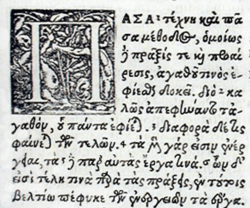 ΠΑΣΑ τέχνη καὶ πᾶ
σα μέθοδος, ὁμοίως
ἡ πρᾶξίς τε καὶ προαί
ρεσις, ἀγαθοῦ τινὸς
ἐφίεσθαι δοκεῖ. διὸ κα
λῶς ἀπεφήναντο τἀ
γαθὸν, οὗ πάντα ἐφίε). διαφορὰ δέ τις
φαίνε) τῶν τελῶν. τὰ μὲν γάρ εἰσιν ἐνέρ
γειαι, τὰ ἢ παρ' αὐτὰς ἔργα τινά. ὧν δ'
εἰσὶ τέλη τινὰ παρὰ τὰς πράξεις, ἐν τούτοις
βελτίω πέφυκε τῶν ἐνεργειῶν τὰ ἔργα.